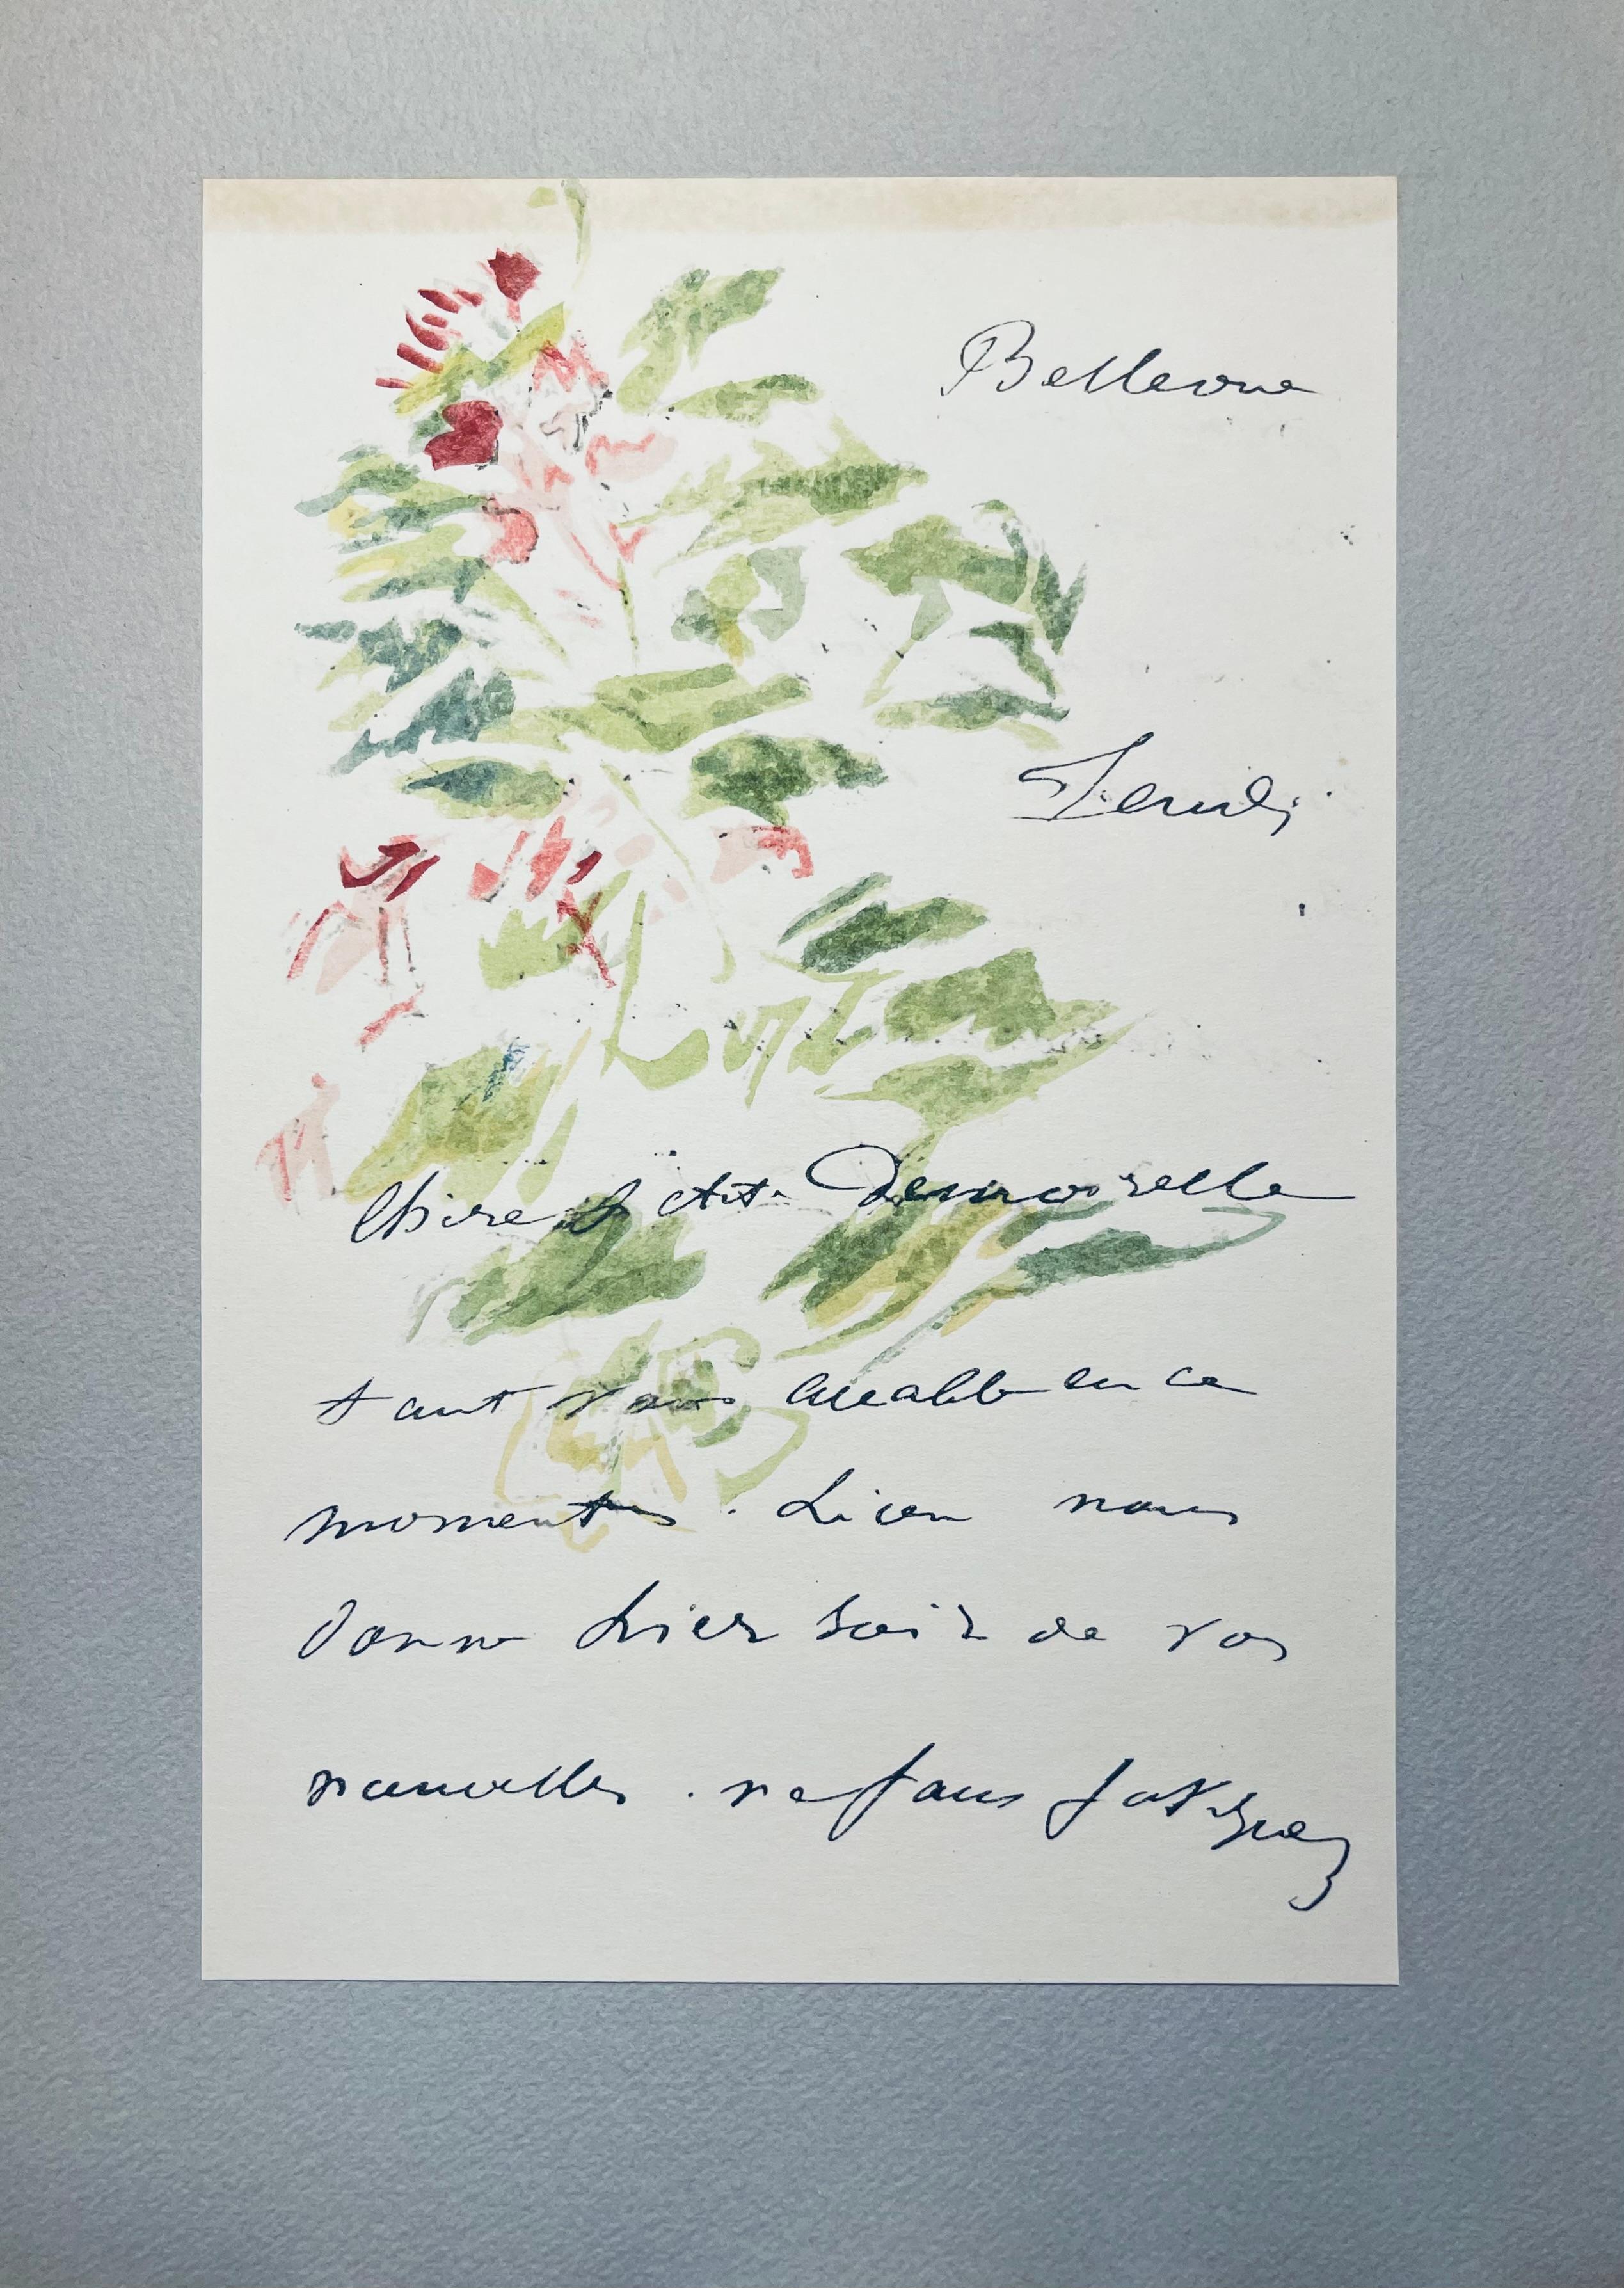 Bellevue
Jeudi
Chère petite Demoiselle
tout vous accable en ce
moment. Léon nous
donne hier soir de vos
nouvelles. ne fatiguez